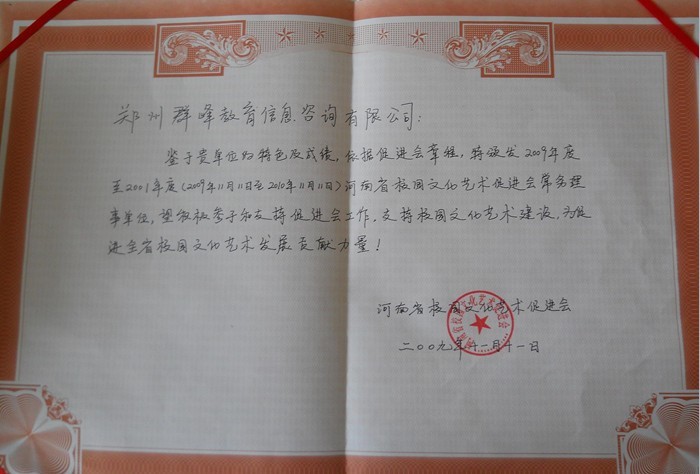 郑州群峰教育信息咨询有限公司：
鉴于贵单位的特色及成绩，依据促进会章程，特颁发2009年度
至2001年度（2009年11月11日至2010年11月11日）河南省校园文化艺术促进会常务理
事单位，望积极参予和支持促进会工作，支持校园文化艺术建设，为促
进全省校园文化艺术发展贡献力量！
河南省校园文化艺术促进会
二00九年十一月十一日